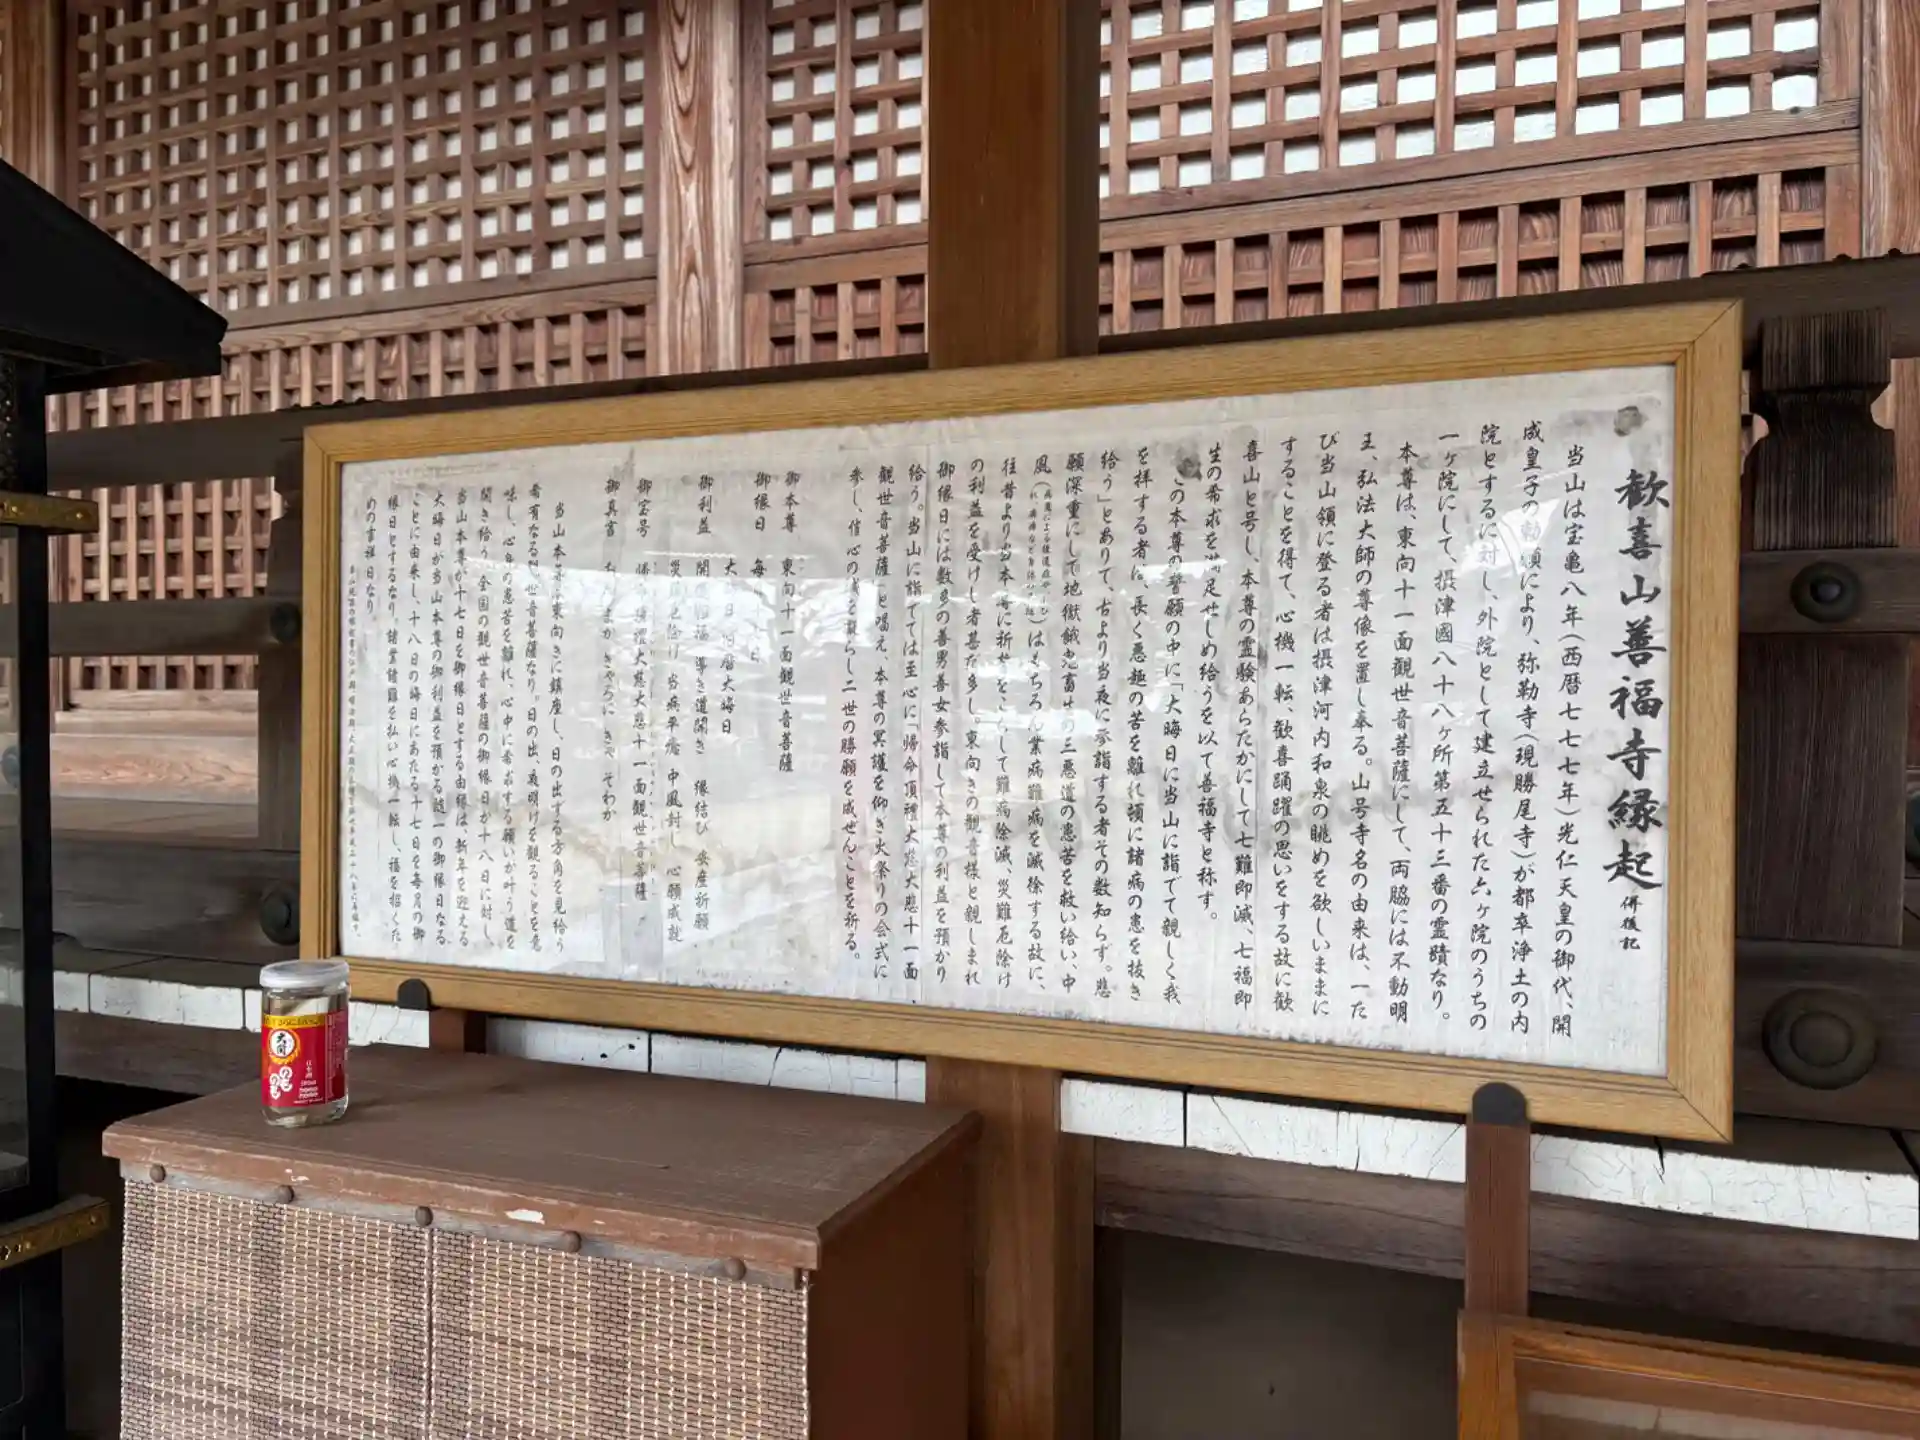 歓喜山善福寺縁起 併後記
当山は宝亀八年(西暦七七七年)光仁天皇の御代、開
成皇子の勅願により、弥勒寺(現勝尾寺)が都卒浄土の内
院とするに対し、外院として建立せられた六ヶ院のうちの
一ヶ院にして、摂津國八十八ヶ所第五十三番の霊蹟なり。
本尊は、東向十一面観世音菩薩にして、両脇には不動明
王、弘法大師の尊像を置し奉る。山号寺名の由来は、一た
び当山領に登る者は摂津河内和泉の眺めを欲しいままに
することを得て、心機一転、歓喜踊躍の思いをする故に歓
喜山と号し、本尊の霊験あらたかにして七難即滅、七福即
生の希求を満足せしめ給うを以て善福寺と称す。
この本尊の誓願の中に「大晦日に当山に詣でて親しく我
を拝する者は、長く悪趣の苦を離れ頓に諸病の患を抜き
給う」とありて、古より当夜に参詣する者その数知らず。悲
願深重にして地獄餓鬼畜生の三悪道の患苦を救い給い、中
風()はもちろん業病難病を滅除する故に、
往昔より当本尊に祈念をこらして難病除滅、災難厄除け
の利益を受けし者甚だ多し。東向きの観音様と親しまれ
御縁日には数多の善男善女参詣して本尊の利益を預かり
給う。当山に詣でては至心に「帰命頂禮大慈大悲十一面
観世音菩薩」と唱え、本尊の冥護を仰き火祭りの会式に
参し、信心の誠を凝らし二世の勝願を成ぜんことを祈る。
御本尊 東向十一面観世音菩薩
御縁日 毎月 日
大 日 旧暦大晦日
御利益 開運招福 導き道開き 縁結び 安産祈願
災難厄除け 当病平癒 中風封し 心願成就
御宝号 帰命頂禮大慈大悲十一面観世音菩薩
御真言 おん まか きゃろにきゃ そわか
当山本尊は東向きに鎮座し、日の出ずる方角を見給う
希有なる観世音菩薩なり。日の出、夜明けを観ることを意
味し、心年の患苦を離れ、心中に希求する願いが叶う道を
開き給う。全国の観世音菩薩の御縁日が十八日に対し、
当山本尊が十七日を御縁日とする由縁は、新年を迎える
大晦日が当山本尊の御利益を預かる随一の御縁日なる
ことに由来し、十八日の晦日にあたる十七日を毎月の御
縁日とするなり。諸業諸難を払い心機一転し、福を招くた
めの吉祥日なり。
大関
のものも